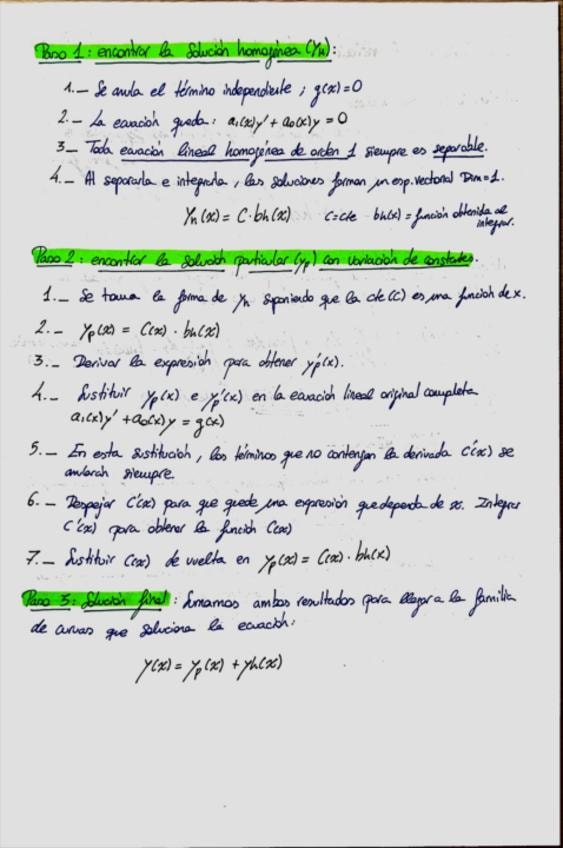 Paso 1: encontrar la solución homogénea (yₕ):
1.- Se anula el término independiente; g(x)=0
2.- La ecuación queda: a₁(x)y' + a₀(x)y = 0
3.- Toda ecuación lineal homogénea de orden 1 siempre es separable.
4.- Al separarla e integrarla, las soluciones forman un esp. vectorial Dim=1.
yₕ(x) = C·bh(x) C=cte bh(x) = función obtenida al
integrar.
Paso 2: encontrar la solución particular (yp) con variación de constantes.
1.- Se toma la forma de yₕ suponiendo que la cte (C) es una función de x.
2.- yp(x) = C(x) · bh(x)
3.- Derivar la expresión para obtener y'p(x).
4.- Sustituir yp(x) e y'p(x) en la ecuación lineal original completa
a₁(x)y' + a₀(x)y = g(x)
5.- En esta sustitución, los términos que no contengan la derivada C'(x) se
anularán siempre.
6.- Despejar C'(x) para que quede una expresión que dependa de x. Integrar
C'(x) para obtener la función C(x)
7.- Sustituir C(x) de vuelta en yp(x) = C(x) · bh(x)
Paso 3: Solución final: Sumamos ambos resultados para llegar a la familia
de curvas que soluciona la ecuación:
y(x) = yp(x) + yh(x)